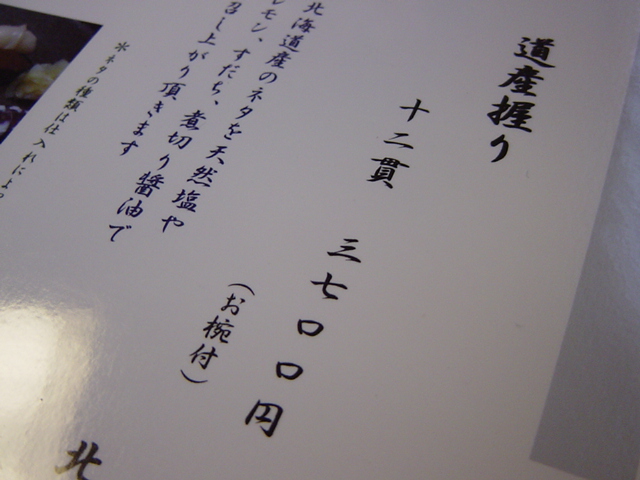 道産握り
十二貫 三七〇〇円
(お椀付)
北海道産のネタを天然塩や
レモン、すだち、煮切り醤油で
召し上がり頂きます
※ネタの種類は仕入れによっ
北